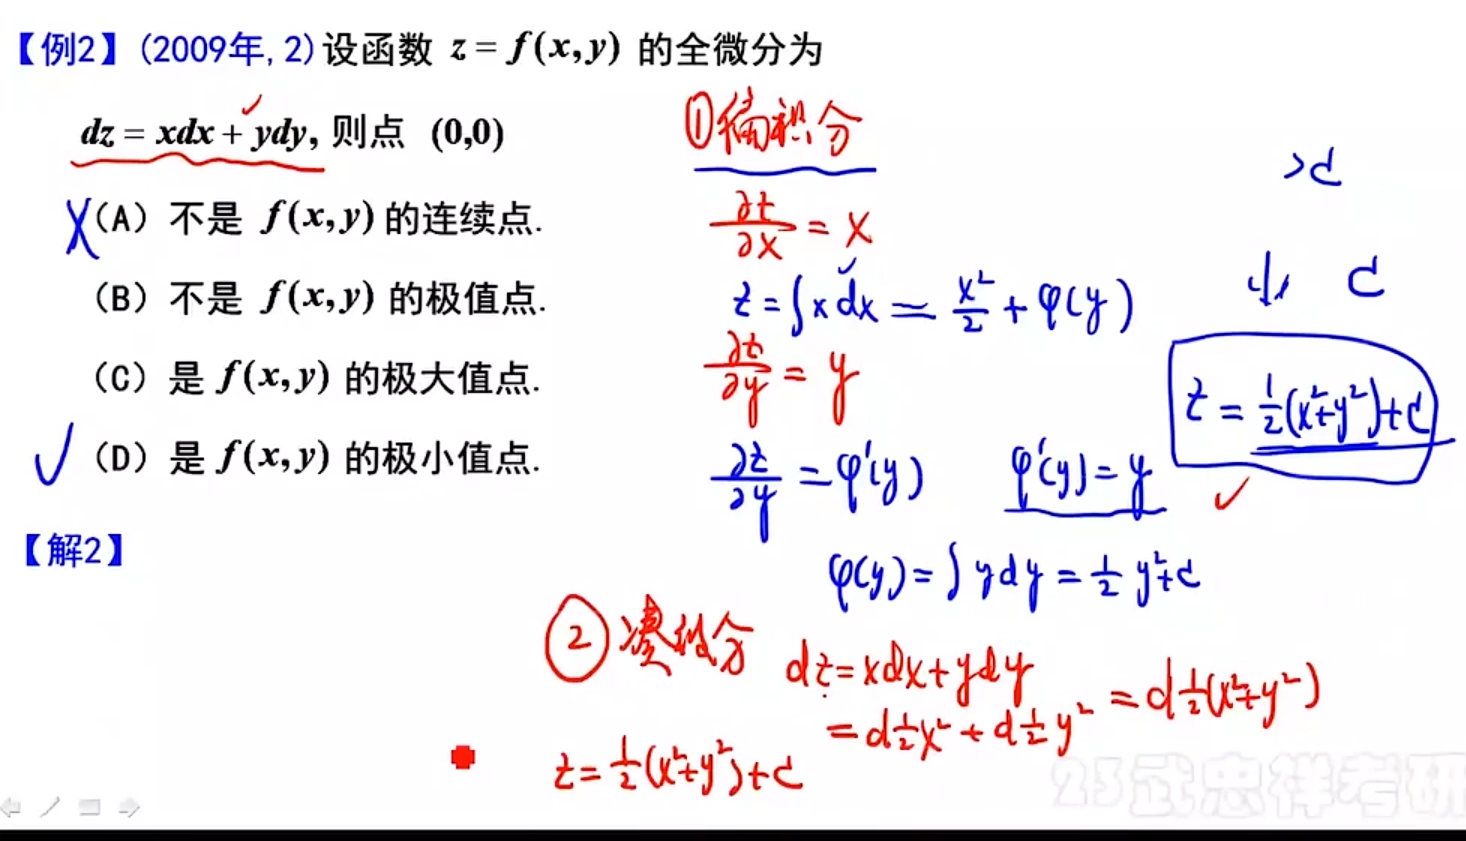 【例2】(2009年, 2) 设函数 z = f(x,y) 的全微分为
dz = xdx + ydy, 则点 (0,0)
(A) 不是 f(x,y) 的连续点.
(B) 不是 f(x,y) 的极值点.
(C) 是 f(x,y) 的极大值点.
(D) 是 f(x,y) 的极小值点.
【解2】
①偏积分
∂z/∂x = x
z = ∫x dx = x²/2 + φ(y)
∂z/∂y = y
∂z/∂y = φ'(y) φ'(y) = y
φ(y) = ∫ y dy = ½ y² + c
>c
c
z = ½(x²+y²)+c
② 凑微分 dz = xdx + ydy
= d½x² + d½y² = d½(x²+y²)
z = ½(x²+y²)+c
23武忠祥考研